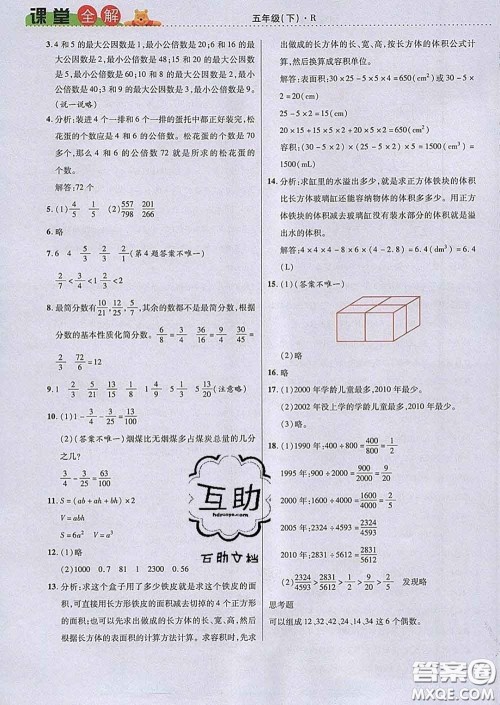 课堂全解
五年级(下)·R
3. 4和5的最大公因数是1,最小公倍数是20;6和16的最
大公因数是2,最小公倍数是48;12和20的最大公因数是4,最
小公倍数是60;3和9的最大公因数是3,最小公倍数是9。
(说一说略)
4. 分析:装进4个一排和6个一排的蛋托中都正好装完,松
花蛋的个数应是4和6的公倍数。松花蛋的个数是70
多个,那么4和6的公倍数72就是所求的松花蛋的个
数。
解答:72个
5. (1) 4/5 (2) 557/798 201/266
6. 略
7. 6 4 5/3 2/3 (第4题答案不唯一)
2/7 < 3/7 < 1/2 < 4/7 < 3/4
8. 最简分数有 10/21, 12/25, 5/7, 其余的数都不是最简分数,根据
分数的基本性质化简分数。 6/8 = 3/4 36/16 = 9/4 30/45 =
2/3 72/6 = 12
9. 1 2/3 2/15 5/3 5/7 1/5 5 13/20 (注意略)
10. (1) 1 - 3/4 - 3/25 = 13/100
(2)(答案不唯一)烟煤比无烟煤多占煤炭总量的几分
之几?
3/4 - 3/25 = 63/100
11. S = (ab + ah + bh) × 2
V = abh
S = 6a² V = a³
12. (1)略
(2)1000 0.7 81 1 2300 0.56
13. 分析:求这个盒子用了多少铁皮就是求这个铁皮的面
积,可直接用长方形铁皮的面积减去切掉的4个正方形
的面积;也可以先求出做成的长方体的长、宽、高,然后
根据长方体的表面积的计算方法计算。求容积时,先求
出做成的长方体的长、宽、高,按长方体的体积公式计
算,然后换算成容积单位。
解答:表面积:30×25-5×5×4=650(cm²)或30-5×
2=20(cm) 25-5×2=15(cm)
20×15+5×15×2+20×5×2=650(cm²)
容积:(30-5×2)×(25-5×2)×5=1500(cm³)=
1500(mL)
14. 分析:求缸里的水溢出多少,就是求正方体铁块的体积
比长方体玻璃缸还能容纳物体的体积多多少。用正方
体铁块的体积减去玻璃缸没有装水部分的体积,就是溢
出水的体积。
解答:4×4×4-8×6×(4-2.8)=6.4(dm³)=6.4
(L)
15. (1)(答案不唯一)
(2)略
16. 略
17. (1)2000年学龄儿童最多,2010年最少。
(2)2002年没上学的学龄儿童最多,2010年最少。
(3)略。
18. (1)1990年:400÷800 = 400/800 = 1/2
1995年:900÷2000 = 900/2000 = 9/20
2000年:2324÷4593 = 2324/4593
2010年:2831÷5612 = 2831/5612
(2) 2324/4593 > 2831/5612 > 1/2 > 9/20 > 1/5 发现略
思考题
可以组成12,32,42,24,14,34这6个偶数。
互助
hdzuoye.com
互助文档
答案圈
MXQE.COM